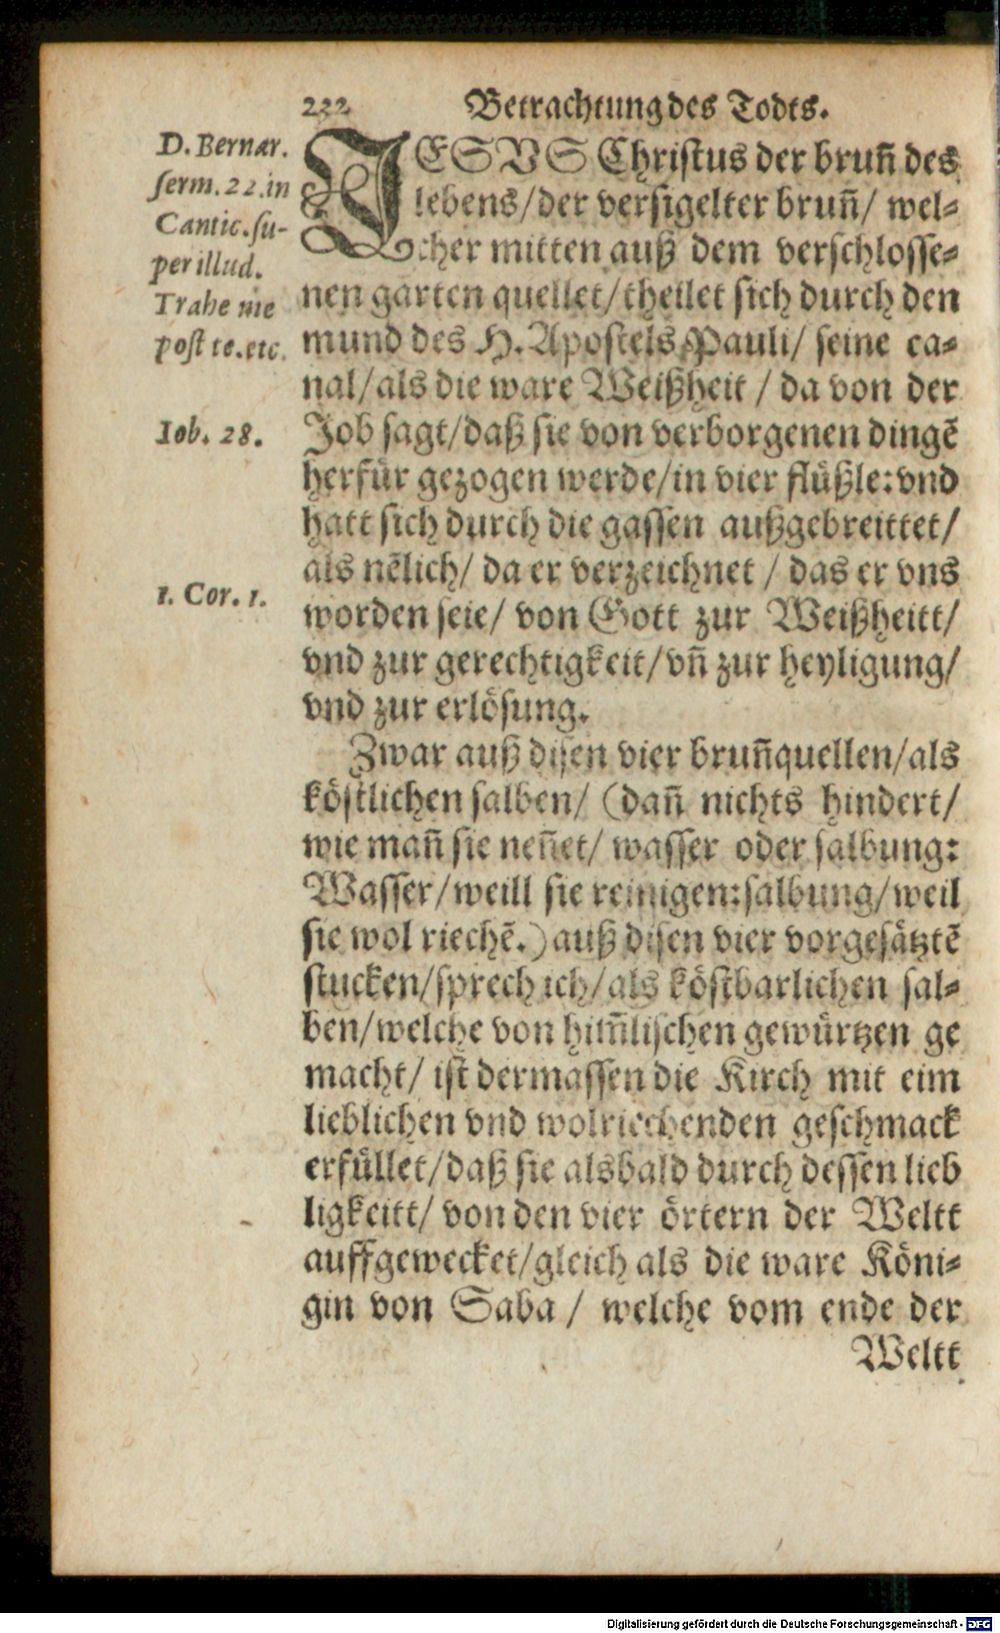 222 Betrachtung des Todts.
D. Bernar.
serm. 22. in
Cantic. su-
per illud.
Trahe me
post te. etc.
JESVS Christus der bruñ des
lebens/der versigelter bruñ/ wel-
cher mitten auß dem verschlosse-
nen garten quellet/theilet sich durch den
mund des H. Apostels Pauli/ seine ca-
nal/als die ware Weißheit / da von der
Iob. 28.
Job sagt/daß sie von verborgenen dingẽ
herfür gezogen werde/in vier flüßle: vnd
hatt sich durch die gassen außgebreittet/
als nẽlich/ da er verzeichnet / das er vns
1. Cor. 1.
worden seie/ von Gott zur Weißheitt/
vnd zur gerechtigkeit/vñ zur heyligung/
vnd zur erlösung.
Zwar auß disen vier bruñquellen/als
köstlichen salben/ (dañ nichts hindert/
wie mañ sie neñet/ wasser oder salbung:
Wasser/weill sie reinigen: salbung/weil
sie wol riechẽ.) auß disen vier vorgesätztẽ
stucken/sprech ich/als köstbarlichen sal-
ben/welche von him̃lischen gewürtzen ge
macht/ ist dermassen die Kirch mit eim
lieblichen vnd wolriechenden geschmack
erfüllet/daß sie alsbald durch dessen lieb
ligkeitt/ von den vier örtern der Weltt
auffgewecket/gleich als die ware Köni-
gin von Saba / welche vom ende der
Weltt
Digitalisierung gefördert durch die Deutsche Forschungsgemeinschaft - DFG